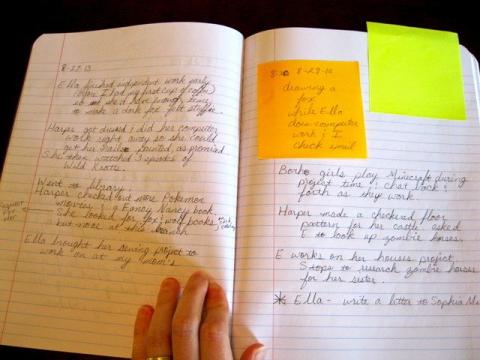 8-27-13
Ella finished independent work early
(before I had my first cup of coffee)
so she'd have enough time
to make a dark fox felt stuffie.
Harper got dressed & did her computer
work right away so she could
get her nails painted as promised.
She then watched 3 episodes of
Wild Kratts.
Went to library.
Harper checked out more Pokemon
movies & Fancy Nancy book.
She looked for fox & wolf books
but none at this
Ella brought her sewing project to
work on at my mom's
8-29-13
drawing a
fox
while Ella
does computer
work & I
check email
Both girls play Minecraft during
project time & chat back &
forth as they work.
Harper made a checkered floor
pattern for her castle & asked
E to look up zombie horses.
E works on her houses project,
stops to research zombie horses
for her sister.
* Ella - write a letter to Sophia